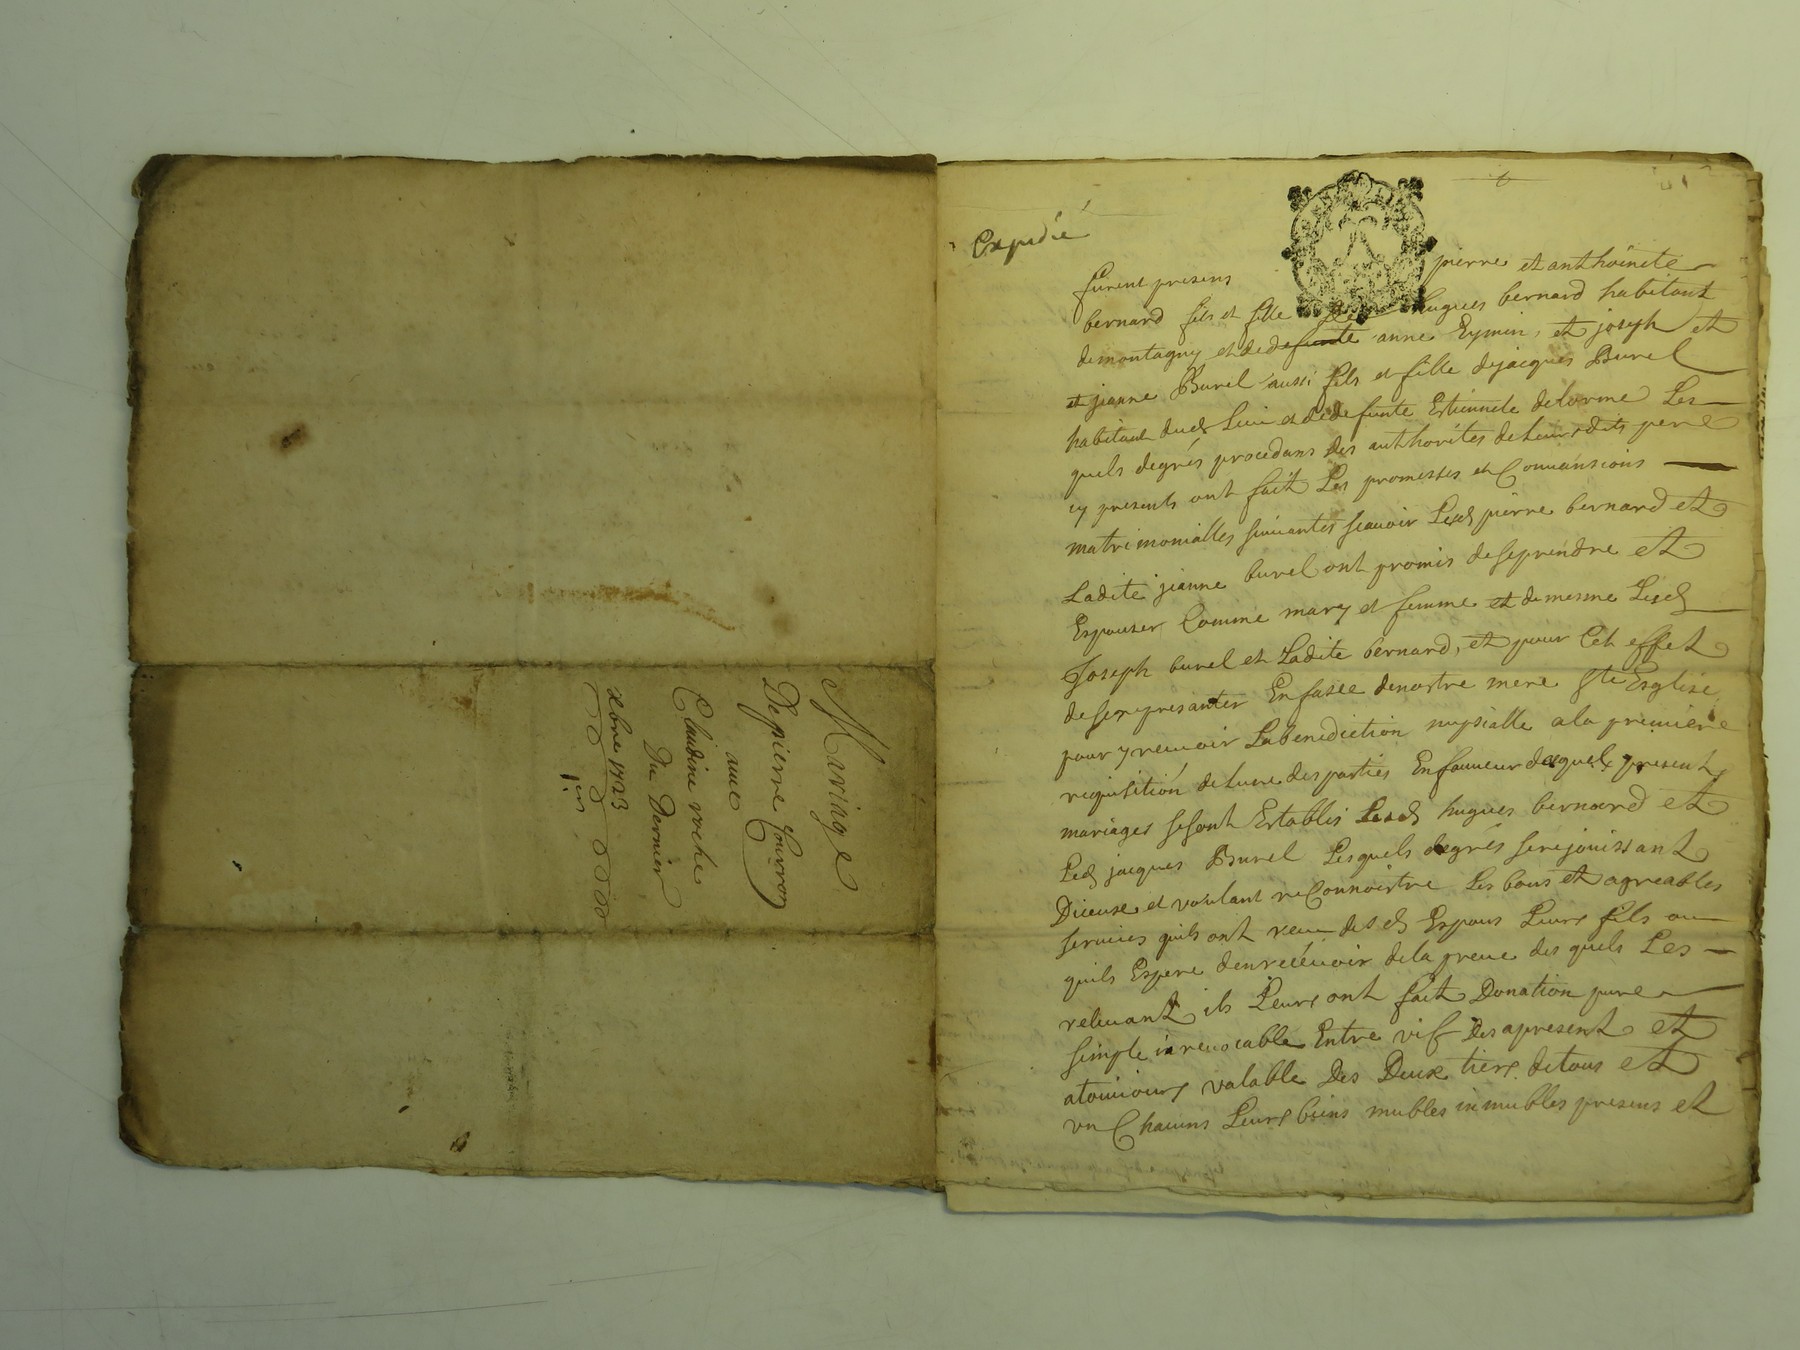 Mariage
Depierre Couvron
auec
Claudine roche
Du Dernier
xbre 1723
Expedié
furent presens pierre et anthoinete
bernard fils et fille de hugues bernard habitant
de montagny et de defunte anne Eymin, et joseph et
et jeanne Burel aussi fils et fille de jacques Burel
habitant dud lieu et de defunte Estiennete delorme Les
quels degrés procedans des authorites de Leurs dits pere
cy presents ont fait Les promesses et Conuansions
matrimonialles suiuantes scauoir Lesd pierre bernard et
Ladite jeanne burel ont promis de se prendre et
Espouser Comme mary et femme et de mesme Lesd
Joseph burel et Ladite bernard, et pour Cet effet
de se representer En fasce de nostre mere Ste Esglise
pour y receuoir La benediction nupsialle a la premiere
requisition de lune des parties En faueur desquels presents
mariages se sont Establis Lesd hugues bernard et
Led jacques Burel Lesquels degrés se rejouissant
Diceux et voulant reConnoistre Les bons et agreables
seruices quils ont receu desd Espous Leurs fils ou
quils Espere den receuoir de la preuue des quels Les
releuant ils Leurs ont fait Donation pure
simple irreuocable Entre vif Des apresent et
atoujours valable Des Deux tiers de tous et
vn Chacuns Leurs biens mubles inmubles presens et